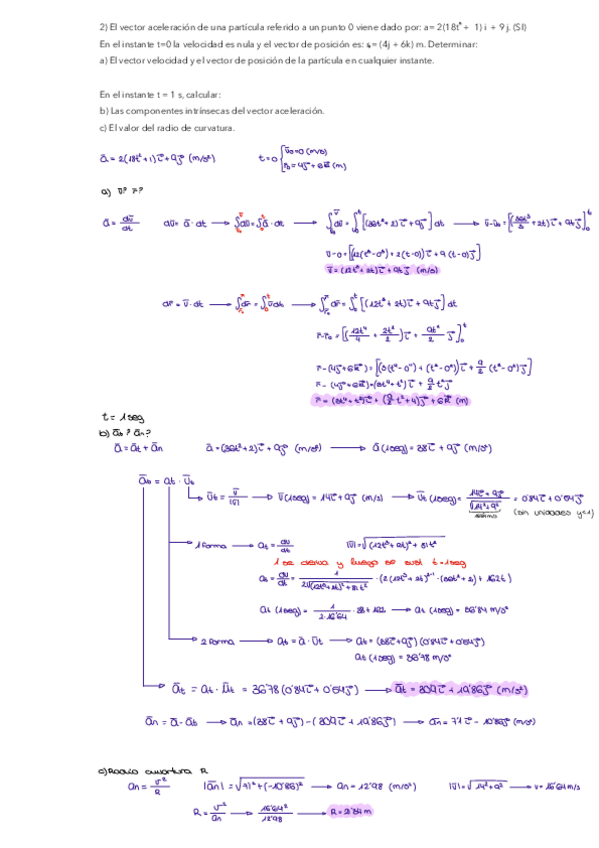 2) El vector aceleración de una partícula referido a un punto 0 viene dado por: a= 2(18t² + 1) i + 9 j. (SI)
En el instante t=0 la velocidad es nula y el vector de posición es: s= (4j + 6k) m. Determinar:
a) El vector velocidad y el vector de posición de la partícula en cualquier instante.
En el instante t = 1 s, calcular:
b) Las componentes intrínsecas del vector aceleración.
c) El valor del radio de curvatura.
ā = 2(18t²+1)i + 9j (m/s²) t=0 { v̄₀=0 (m/s)
r̄₀ = 4j + 6k (m)
a) v? r?
ā = dv̄/dt dv̄ = ā · dt → ∫dv̄ = ∫ā · dt → ∫dv̄ = ∫[(36t²+2)i + 9j] dt → v̄-v̄₀ = [(36t³/3 + 2t)i + 9tj]
v-0 = [(12(t³-0³)+2(t-0))i + 9(t-0)j]
v̄ = (12t³+2t)i + 9tj (m/s)
dr = v̄ · dt → ∫dr = ∫v̄dt → ∫dr = ∫[(12t³+2t)i + 9tj] dt
r-r₀ = [(12t⁴/4 + 2t²/2)i + 9t²/2 j]
r-(4j+6k) = [(3(t⁴-0⁴)+(t²-0²))i + 9/2 (t²-0²)j]
r-(4j+6k) = (3t⁴+t²)i + 9/2 t²j
r = (3t⁴+t²)i + (9/2 t²+4)j + 6k (m)
t = 1seg
b) āt? ān?
ā = āt + ān ā = (36t²+2)i + 9j (m/s²) → ā(1seg) = 38i + 9j (m/s²)
āt = at · ūt
ūt = v̄/|v̄| → v̄(1seg) = 14i + 9j (m/s) → ūt(1seg) = 14i + 9j / √14²+9² = 0'84i + 0'54j
(sin unidades y<1)
1 forma → at = dv/dt |v̄| = √(12t³+2t)² + 81t²
1 se deriva y luego se sust t=1seg
at = dv/dt = 1 / 2√(12t³+2t)²+81t² · (2(12t³+2t)²⁻¹ · (36t²+2) + 162t)
2 forma → at = ā · ūt → at = (38i+9j)(0'84i+0'54j)
at(1seg) = 36'78 m/s²
āt = at · ūt = 36'78(0'84i + 0'54j) → āt = 30'9i + 19'86j (m/s²)
ān = ā - āt → ān = (38i + 9j) - (30'9i + 19'86j) → ān = 7'1i - 10'86j (m/s²)
c) Radio curvatura R
an = v²/R |ān| = √7'1² + (-10'86)² → an = 12'98 (m/s²) |v̄| = √14²+9² → v = 16'64 m/s
R = v²/an → 16'64²/12'98